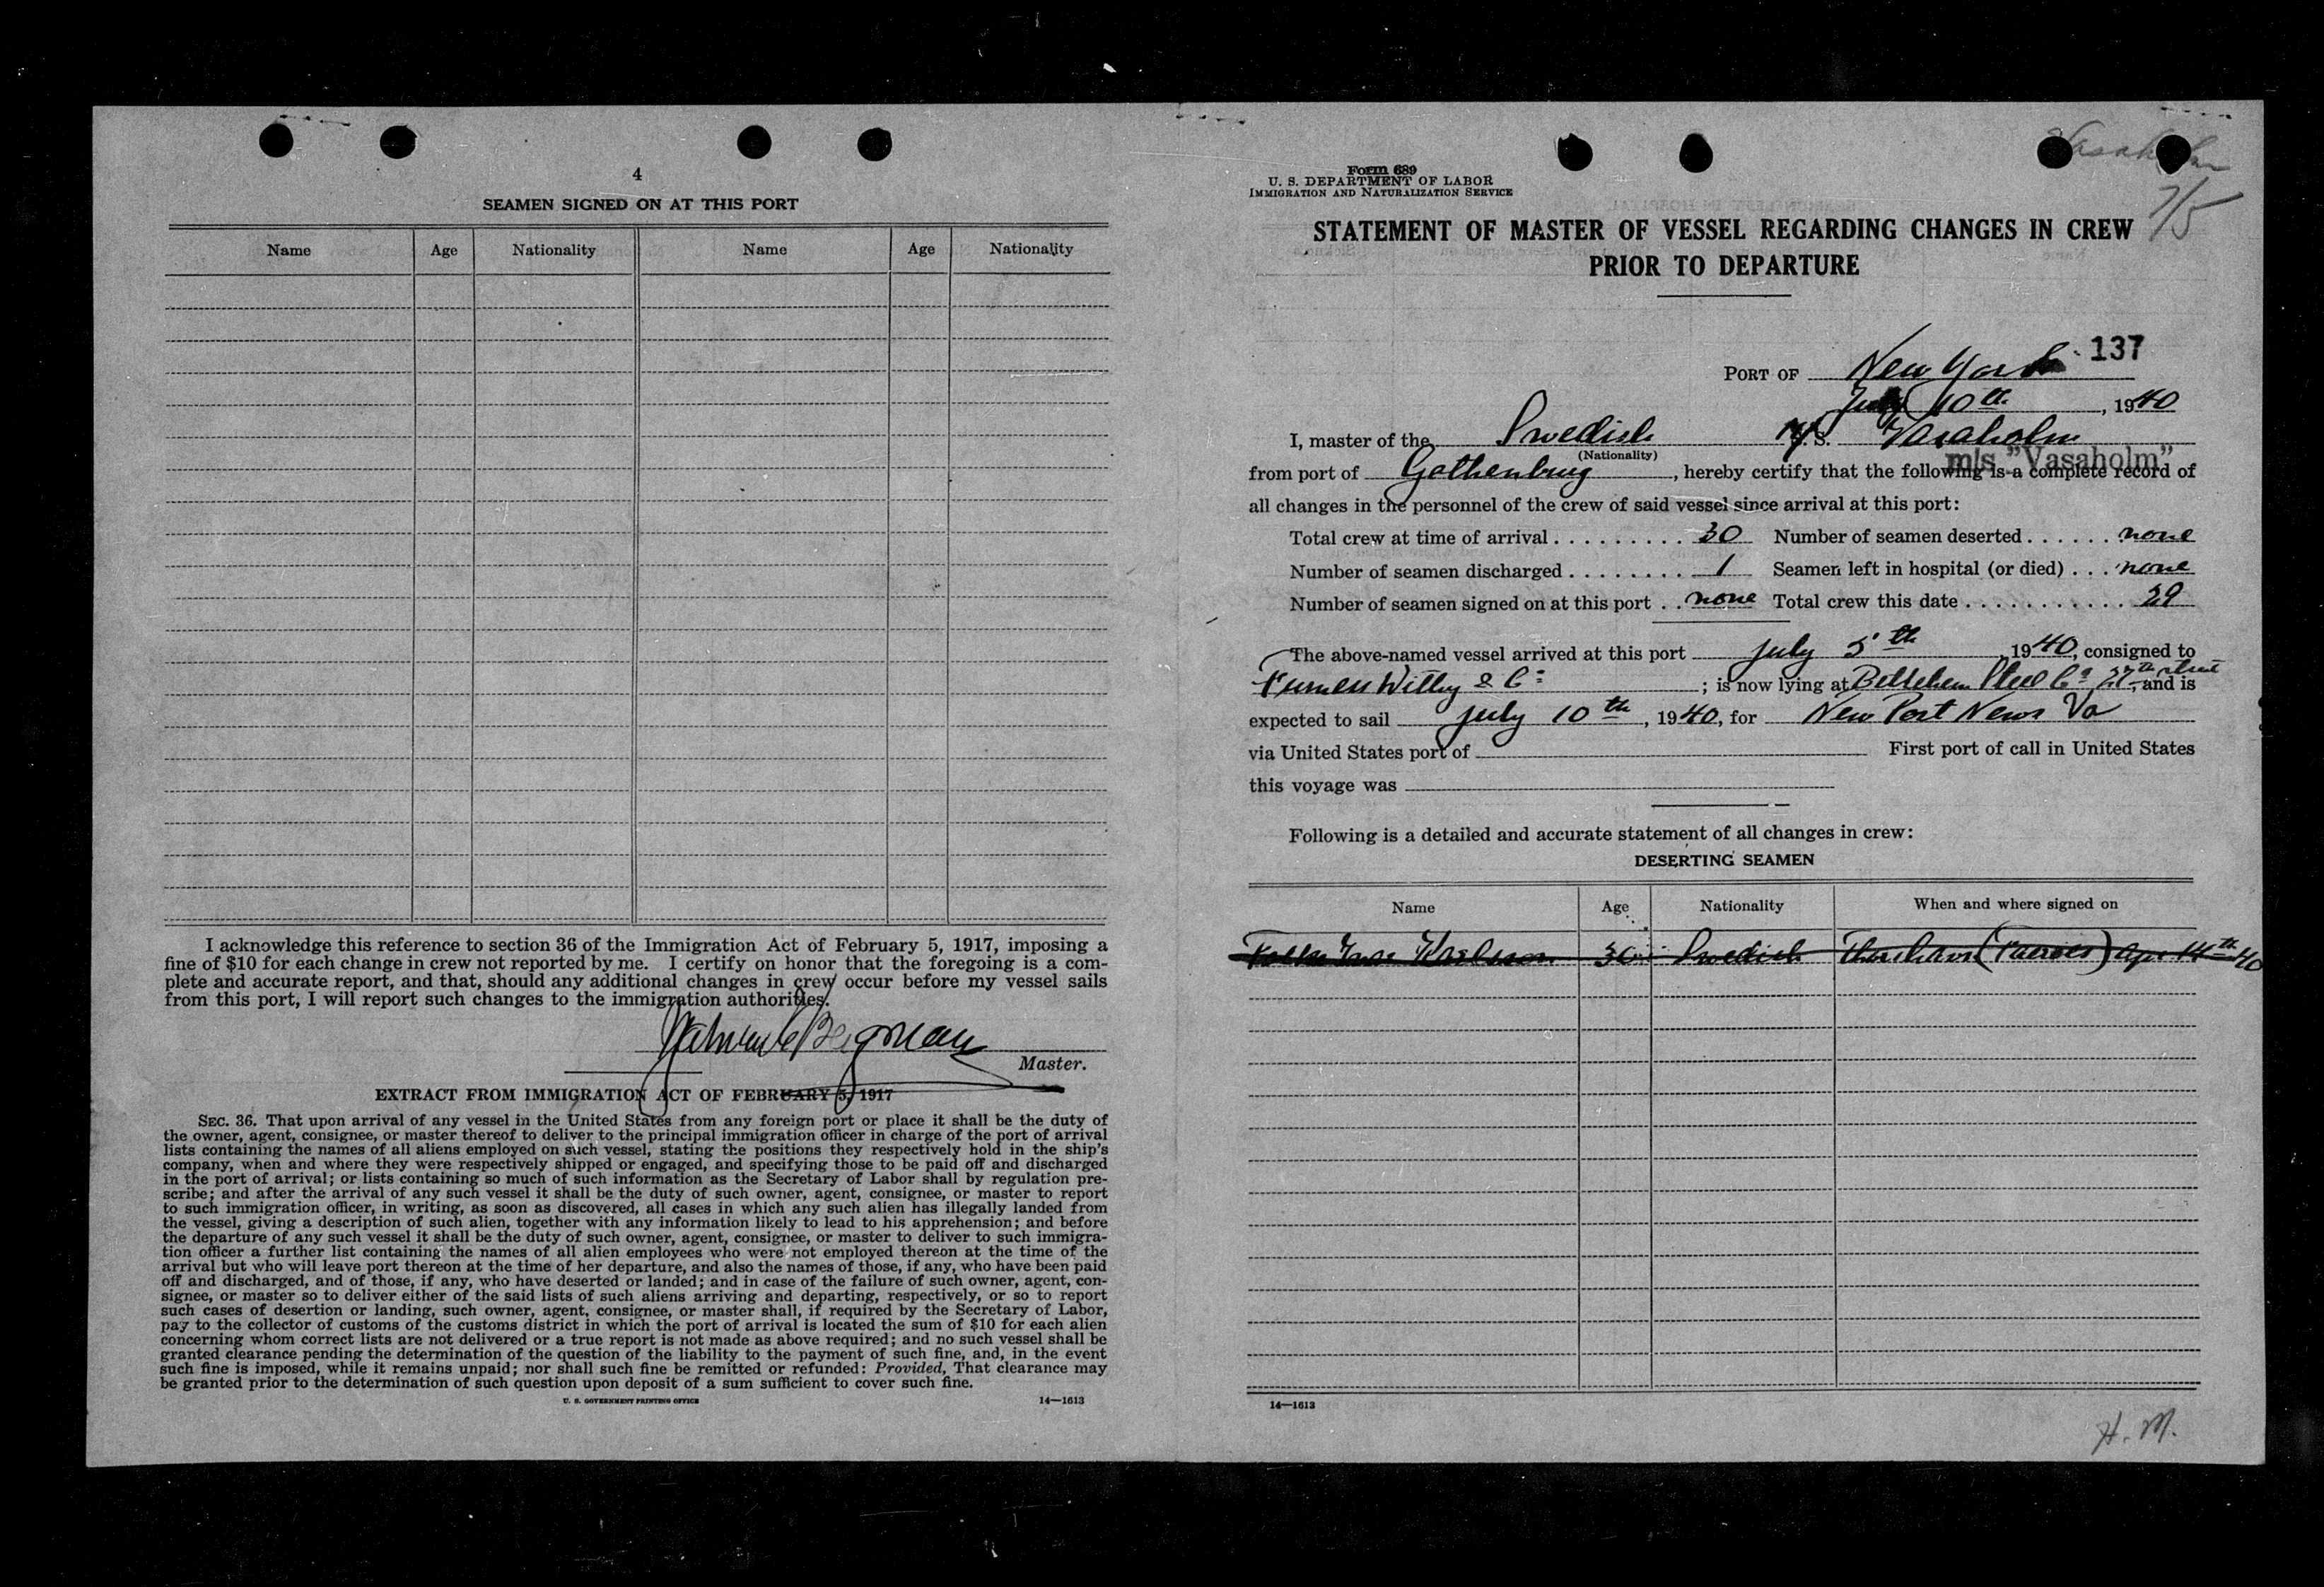 4
SEAMEN SIGNED ON AT THIS PORT
Name Age Nationality Name Age Nationality
I acknowledge this reference to section 36 of the Immigration Act of February 5, 1917, imposing a
fine of $10 for each change in crew not reported by me. I certify on honor that the foregoing is a com-
plete and accurate report, and that, should any additional changes in crew occur before my vessel sails
from this port, I will report such changes to the immigration authorities.
Master.
EXTRACT FROM IMMIGRATION ACT OF FEBRUARY 5, 1917
SEC. 36. That upon arrival of any vessel in the United States from any foreign port or place it shall be the duty of
the owner, agent, consignee, or master thereof to deliver to the principal immigration officer in charge of the port of arrival
lists containing the names of all aliens employed on such vessel, stating the positions they respectively hold in the ship's
company, when and where they were respectively shipped or engaged, and specifying those to be paid off and discharged
in the port of arrival; or lists containing so much of such information as the Secretary of Labor shall by regulation pre-
scribe; and after the arrival of any such vessel it shall be the duty of such owner, agent, consignee, or master to report
to such immigration officer, in writing, as soon as discovered, all cases in which any such alien has illegally landed from
the vessel, giving a description of such alien, together with any information likely to lead to his apprehension; and before
the departure of any such vessel it shall be the duty of such owner, agent, consignee, or master to deliver to such immigra-
tion officer a further list containing the names of all alien employees who were not employed thereon at the time of the
arrival but who will leave port thereon at the time of her departure, and also the names of those, if any, who have been paid
off and discharged, and of those, if any, who have deserted or landed; and in case of the failure of such owner, agent, con-
signee, or master so to deliver either of the said lists of such aliens arriving and departing, respectively, or so to report
such cases of desertion or landing, such owner, agent, consignee, or master shall, if required by the Secretary of Labor,
pay to the collector of customs of the customs district in which the port of arrival is located the sum of $10 for each alien
concerning whom correct lists are not delivered or a true report is not made as above required; and no such vessel shall be
granted clearance pending the determination of the question of the liability to the payment of such fine, and, in the event
such fine is imposed, while it remains unpaid; nor shall such fine be remitted or refunded: Provided, That clearance may
be granted prior to the determination of such question upon deposit of a sum sufficient to cover such fine.
U. S. GOVERNMENT PRINTING OFFICE 14—1613
Vasaholm
7/5
Form 689
U. S. DEPARTMENT OF LABOR
IMMIGRATION AND NATURALIZATION SERVICE
STATEMENT OF MASTER OF VESSEL REGARDING CHANGES IN CREW
PRIOR TO DEPARTURE
137
PORT OF New York
July 10th, 1940
I, master of the Swedish M/S. Vasaholm
(Nationality)
m/s "Vasaholm"
from port of Gothenburg, hereby certify that the following is a complete record of
all changes in the personnel of the crew of said vessel since arrival at this port:
Total crew at time of arrival . . . . . . . . . 30 Number of seamen deserted . . . . . . none
Number of seamen discharged . . . . . . . . 1 Seamen left in hospital (or died) . . . none
Number of seamen signed on at this port . . none Total crew this date . . . . . . . . . . . 29
The above-named vessel arrived at this port July 5th, 1940, consigned to
Furness Withy & Co; is now lying at Bethlehem Steel Co 27th street, and is
expected to sail July 10th, 1940, for New Port News Va
via United States port of First port of call in United States
this voyage was
Following is a detailed and accurate statement of all changes in crew:
DESERTING SEAMEN
Name Age Nationality When and where signed on
Karlsson 30 Swedish Thorshavn (Faeroes) Apr 14th 40
14—1613
H. M.